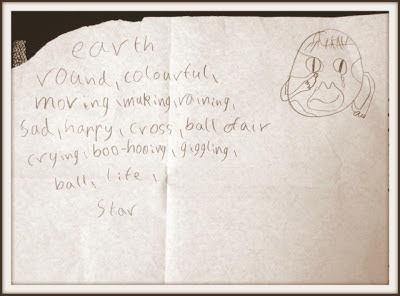 earth
round, colourful,
moving, muking, raining,
sad, happy, cross, ball of air
crying, boo-hooing, giggling,
ball, life,
Star